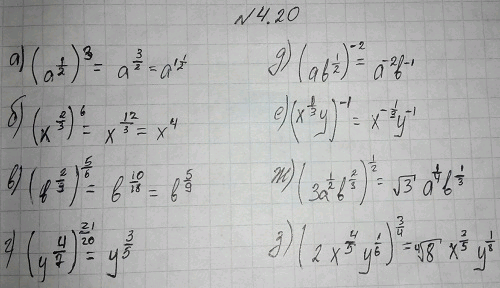 №4.20
а) (a^{1/2})^3 = a^{3/2} = a^{1 1/2}
б) (x^{2/3})^6 = x^{12/3} = x^4
в) (b^{2/3})^{5/6} = b^{10/18} = b^{5/9}
г) (y^{4/7})^{21/20} = y^{3/5}
д) (ab^{1/2})^{-2} = a^{-2}b^{-1}
е) (x^{1/3}y)^{-1} = x^{-1/3}y^{-1}
ж) (3a^{1/2}b^{2/3})^{1/2} = √3 a^{1/4}b^{1/3}
з) (2x^{4/5}y^{1/6})^{3/4} = ∜8 x^{3/5}y^{1/8}